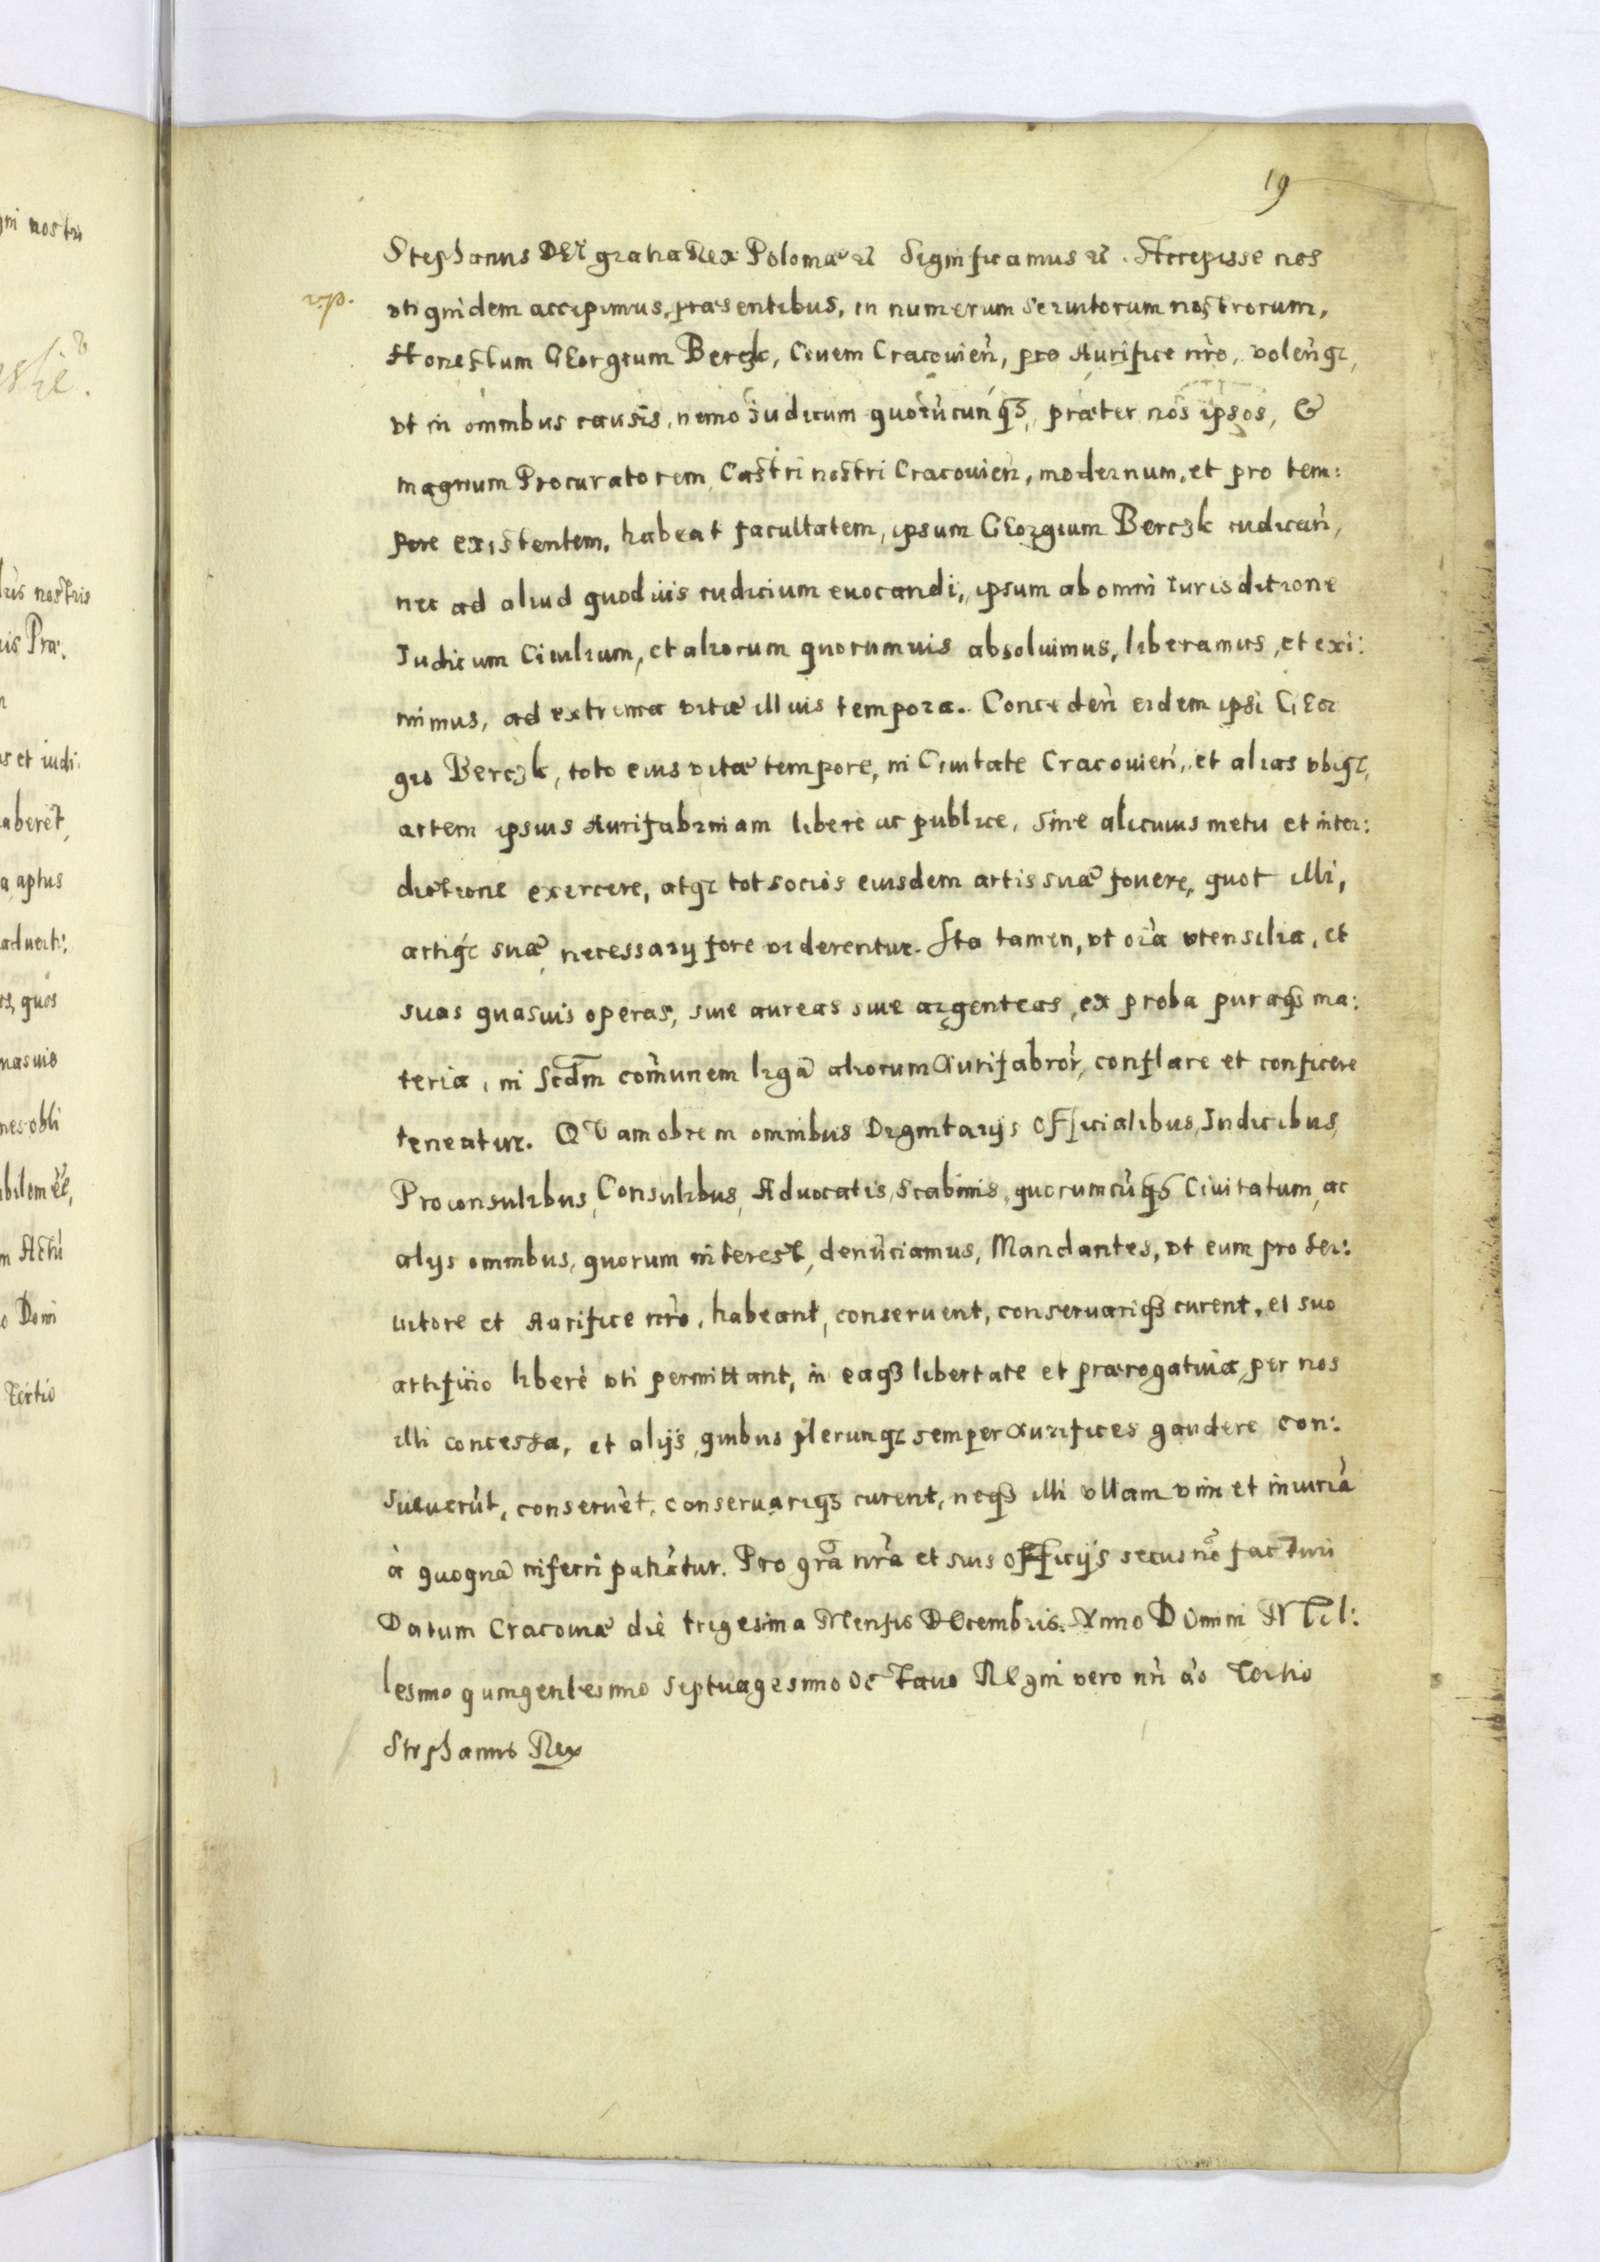 19
Stephanus DEI gratia Rex Poloniæ etc̃ Significamus etc̃. Accepisse nos
vti quidem accipimus, præsentibus, in numerum seruitorum nostrorum,
Honestum GEorgium Berczk, Ciuem Cracouieñ, pro Aurifice nr̃o, voleñq́;,
vt in omnibus causis, nemo Judicum quorũcunq́;, præter nos ipsos, &
magnum Procuratorem Castri nostri Cracouieñ, modernum, et pro tem:
pore existentem, habeat facultatem, ipsum GEorgium Berczk iudicañ,
nec ad aliud quoduis iudicium euocandi, ipsum ab omni iurisditione
Judicum Ciuilium, et aliorum quorumuis absoluimus, liberamus, et exi:
mimus, ad extrema vitæ illius tempora. Concedeñ eidem ipsi GEor
gio Berczk, toto eius vitæ tempore, in Ciuitate Cracouieñ, et alias vbiq́;,
artem ipsius Aurifabriniam liberè ac publice, sine alicuius metu et inter:
dictione exercere, atq́; tot socios eiusdem artis suæ fouere, quot illi,
artiq́; suæ necessarij fore viderentur. Ita tamen, vt oĩa vtensilia, et
suas quasuis operas, siue aureas siue argenteas, ex proba puraq́; ma:
teria, in Scd̃m com̃unem ligã aliorum Aurifabror̃, conflare et conficere
teneatur. QVamobrem omnibus Dignitarijs Officialibus, Iudicibus,
Proconsulibus, Consulibus, Aduocatis, Scabinis, quorumcũq́; Ciuitatum, ac
alijs omnibus, quorum interest, denũciamus, Mandantes, vt eum pro ser:
uitore et Aurifice nr̃o, habeant, conseruent, conseruariq́; curent, et suo
artificio liberè vti permittant, in eaq́; libertate et prærogatiuia per nos
illi concessa, et alijs, quibus plerunq́; semper Aurifices gaudere con:
sueuerũt, conseruẽt, conseruariq́; curent, neq́; illi vllam vim et iniuriã
à quoquã inferri patiãtur. Pro grã nr̃a et suis officijs secus nõ facturi
Datum Cracouiæ die trigesima Mensis DEcembris. Anno DOmini Mil:
lesimo quingentesimo septuagesimo octauo REgni vero nr̃i aõ Tertio
Stephanus Rex